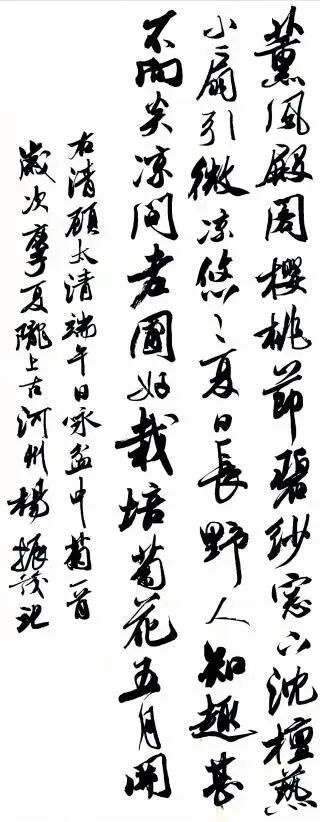 薰風殿阁樱桃節碧紗窓下沈檀爇
小扇引微凉悠〻夏日長野人知趣甚
不向炎凉問老圃好栽培菊花五月開
右清顧太清端午日咏盆中菊一首
歲次夏隴上古河州楊振茂記